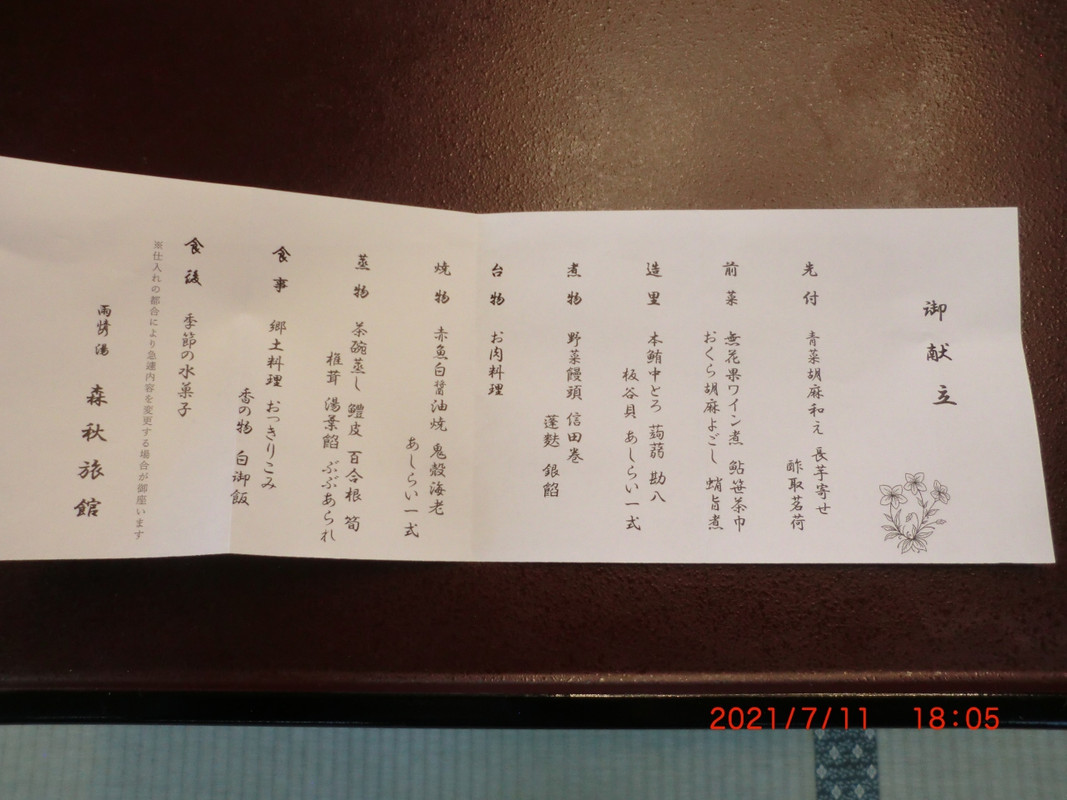 御献立
先付 青菜胡麻和え 長芋寄せ
酢取茗荷
前菜 無花果ワイン煮 鮎笹茶巾
おくら胡麻よごし 蛸旨煮
造里 本鮪中とろ 蒟蒻 勘八
板谷貝 あしらい一式
煮物 野菜饅頭 信田巻
蓬麩 銀餡
台物 お肉料理
焼物 赤魚白醤油焼 鬼殻海老
あしらい一式
蒸物 茶碗蒸し 鱧皮 百合根 筍
椎茸 湯葉餡 ぶぶあられ
食事 郷土料理 おっきりこみ
香の物 白御飯
食後 季節の水菓子
※仕入れの都合により急遽内容を変更する場合が御座います
雨情湯 森秋旅館
2021/7/11 18:05